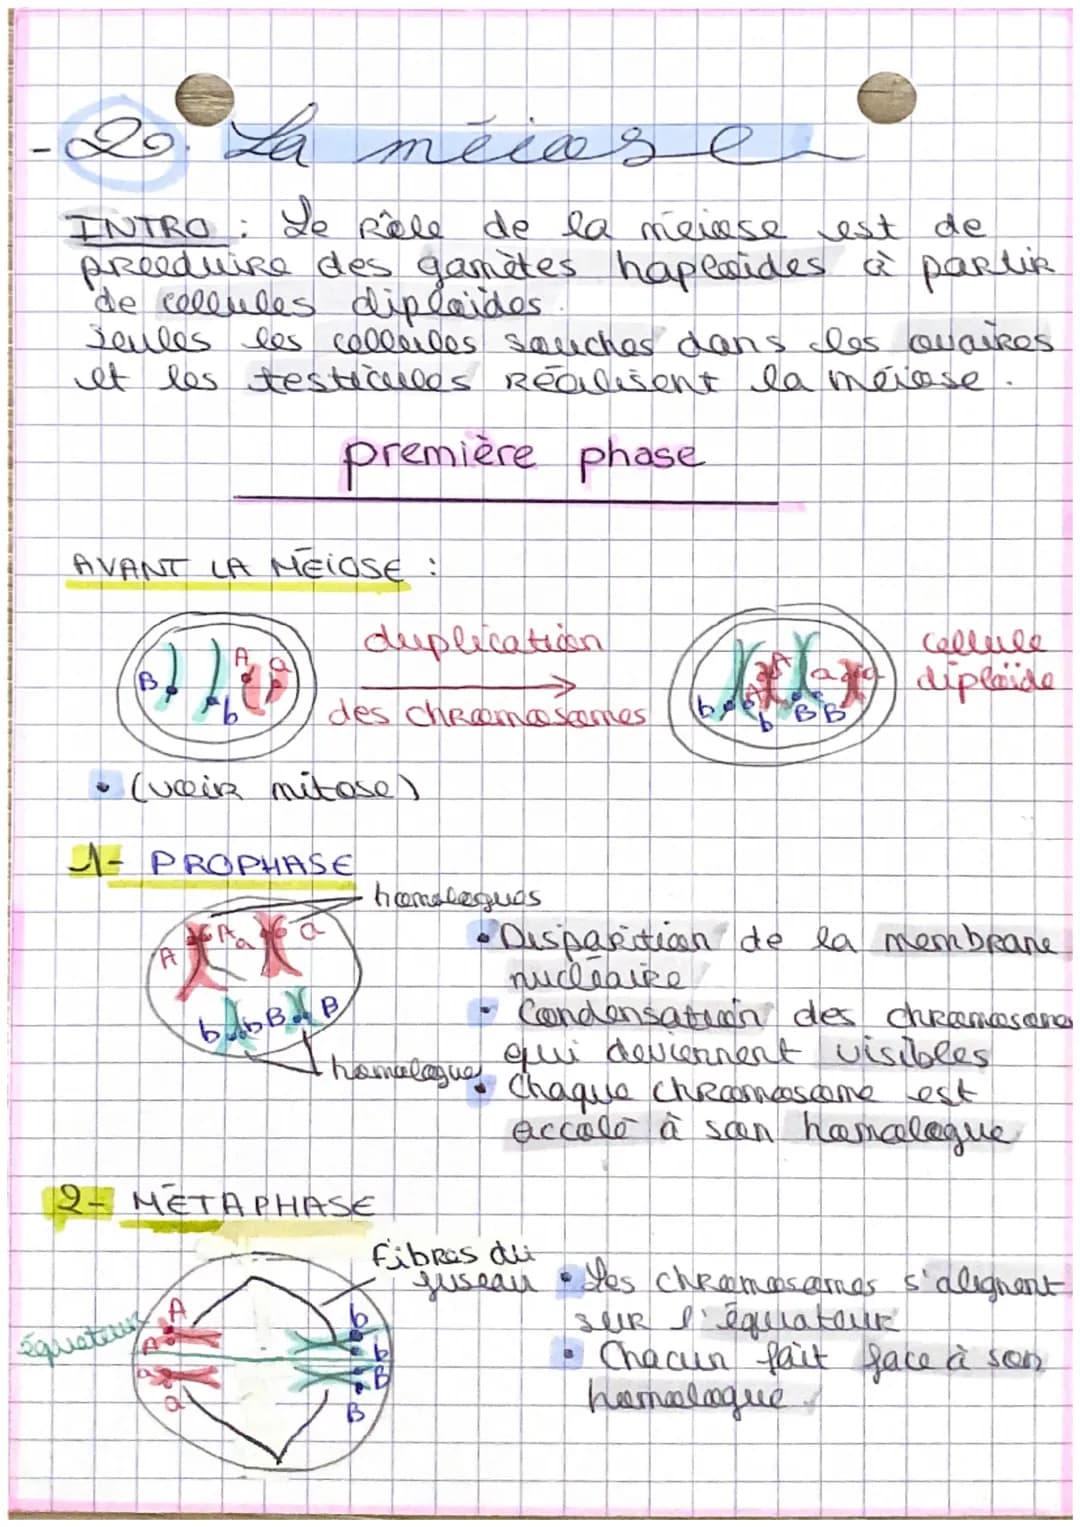 - 20. La méiose
INTRO : Le rôle de la méiose est de
produire des gamètes haploïdes à partir
de cellules diploïdes.
Seules les cellules souches dans les ovaires
et les testicules réalisent la méiose.
première phase
AVANT LA MÉIOSE :
duplication
des chromosomes
cellule
diploïde
B b A a
b b A A b B B a a
• (voir mitose)
1- PROPHASE
homologues
A A a a
b b B B
homologue
• Disparition de la membrane
nucléaire
• Condensation des chromosomes
qui deviennent visibles
• Chaque chromosome est
accolé à son homologue
2- MÉTAPHASE
Fibres du
fuseau
équateur
A
A
a
a
b
b
B
B
• Les chromosomes s'alignent
sur l'équateur
• Chacun fait face à son
homologue.